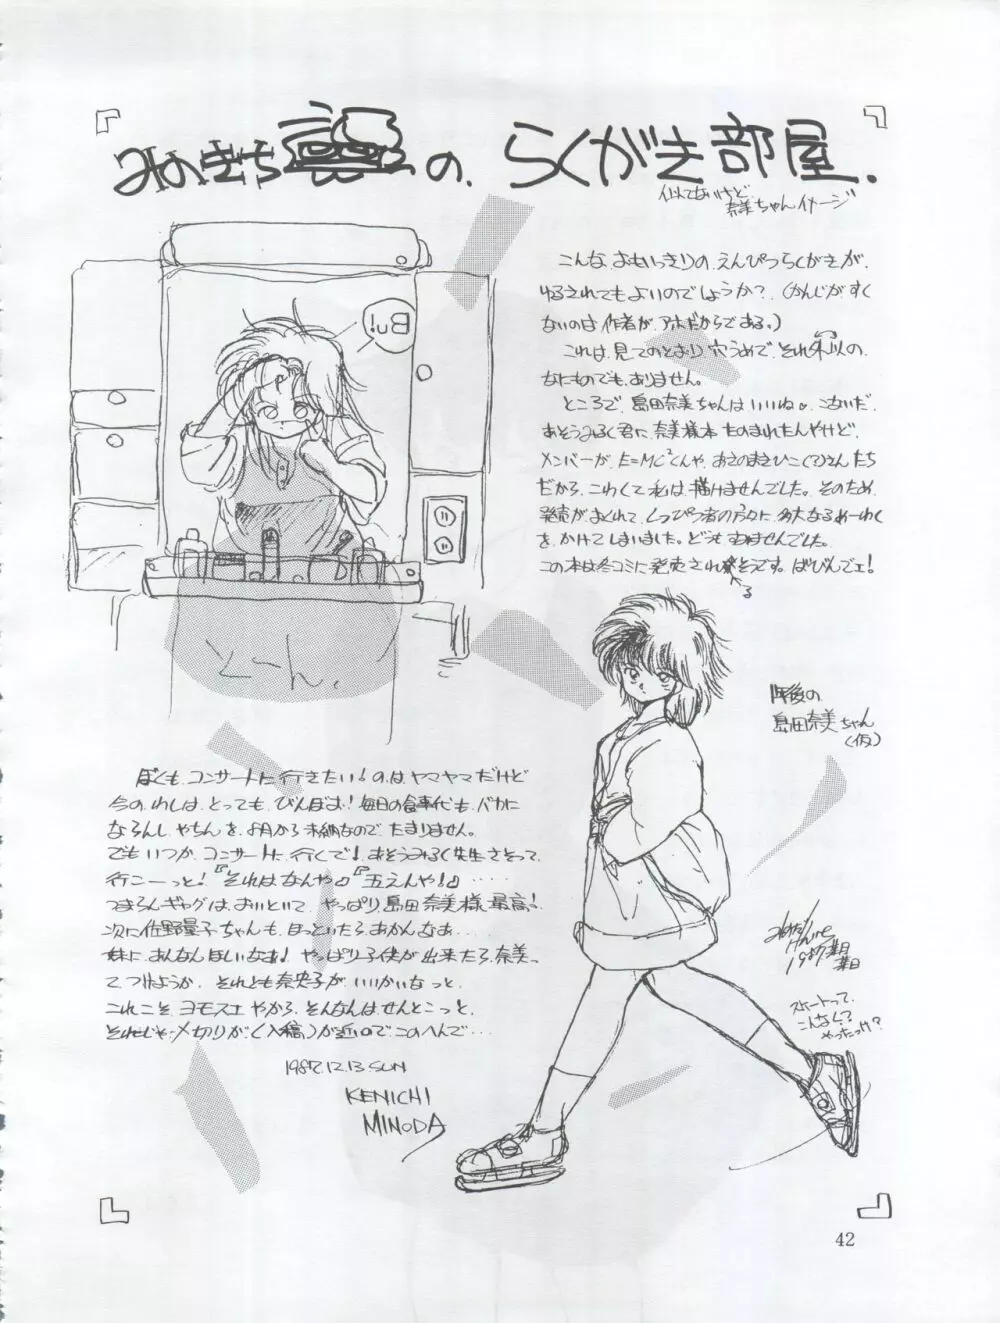 みのきち の、らくがき部屋.
似てないけど
奈美ちゃんイメージ
Bu!
こんな、おもいっきりの、えんぴつらくがきが、
ゆるされてもよいのでしょうか?、(かんじが、すく
ないのは作者が、アホだからである。)
これは、見てのとおり穴うめで、それ外以の、
なにものでも、ありません。
ところで、島田奈美ちゃんは、いいね。こないだ、
あそうみるく君に、奈美様本、たのまれたんやけど、
メンバーが、E=MC²くんや、あさのまさひこ(?)さんたち
だから、こわくて私は、描けませんでした。そのため、
発売が、おくれて、しっぴつ者の方々に、多大なるめーわく
を、かけてしまいました。どうもすみませんでした。
この本は冬コミに発売されるそうです。ばびんでェ!
とーん.
年後の
島田奈美ちゃん
(仮)
ぼくも、コンサートに行きたい!のは、ヤマヤマだけど
今の、わしは、とっても、びんぼお!毎日の食事代も、バカに
ならんし、やちんを、8月から未納なので、たまりません。
でも、いつか、コンサートに、行くで!あそうみるく先生さそって、
行こーっと!『それはなんや♪』『五えんや!♪』.....
つまらんギャグは、おいといて、やっぱり、島田奈美様、最高!
次に佐野量子ちゃんも、ほっといたら、あかんなあ...
妹に、あんなんほしいなあ!やっぱり子供が出来たら、奈美っ
て、つけようか、それとも奈央子が、いいかいなっと、
これこそ、ヨモスエやから、そんなんは、せんとこっと、
それじゃ、〆切りが、(入稿)が近いので、このへんで...
1987.12.13 SUN
KENICHI
MINODA
1987
スケートって、
こんなん?
やったっけ?
42